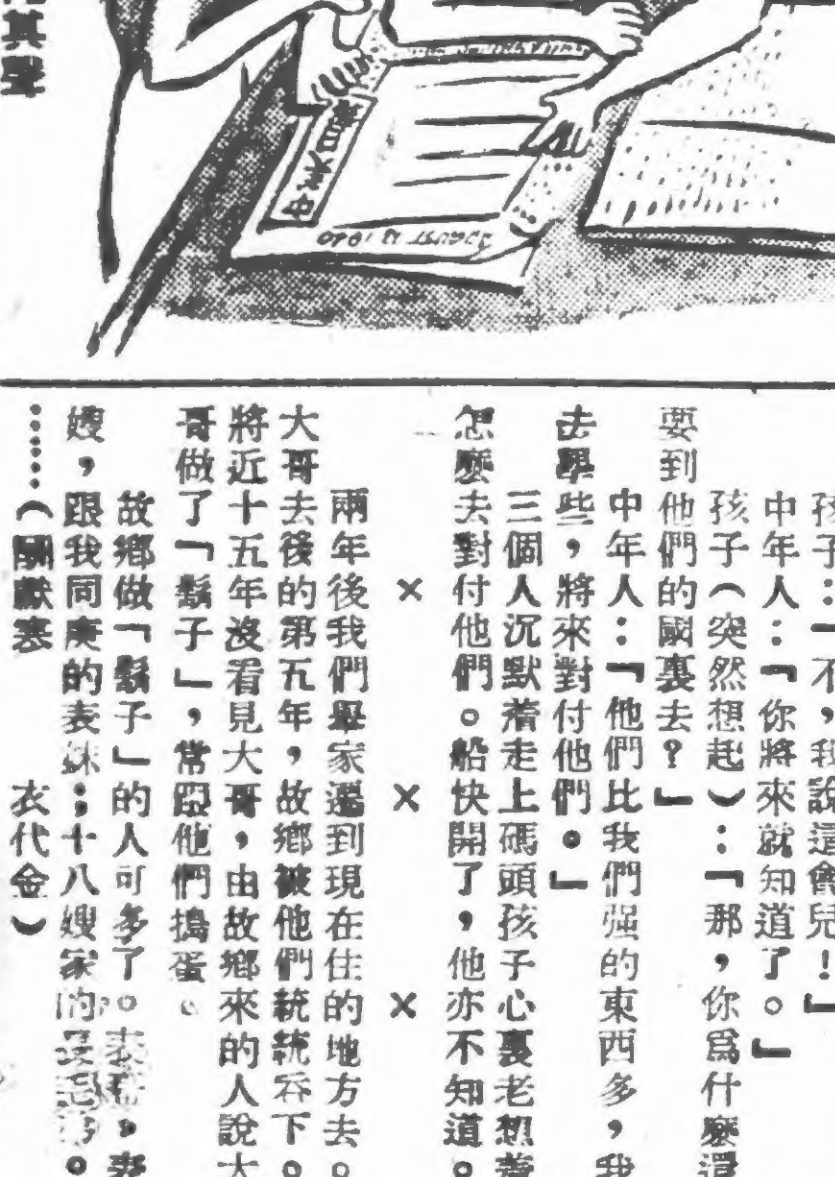 其聲
中美大日曆
AUGUST 13 1940
孩子：「不，我說這會兒！」
中年人：「你將來就知道了。」
孩子（突然想起）：「那，你爲什麽還
要到他們的國裏去？」
中年人：「他們比我們强的東西多，我
去學些，將來對付他們。」
三個人沉默着走上碼頭孩子心裏老想着
怎麽去對付他們。船快開了，他亦不知道。
× × ×
兩年後我們舉家遷到現在住的地方去。
大哥去後的第五年，故鄉被他們統統吞下。
將近十五年沒看見大哥，由故鄉來的人說大
哥做了「鬍子」，常跟他們搗蛋。
故鄉做「鬍子」的人可多了。表哥，表
嫂，跟我同庚的表妹；十八嫂家的長毛哥。
……（關獻塞 衣代金）